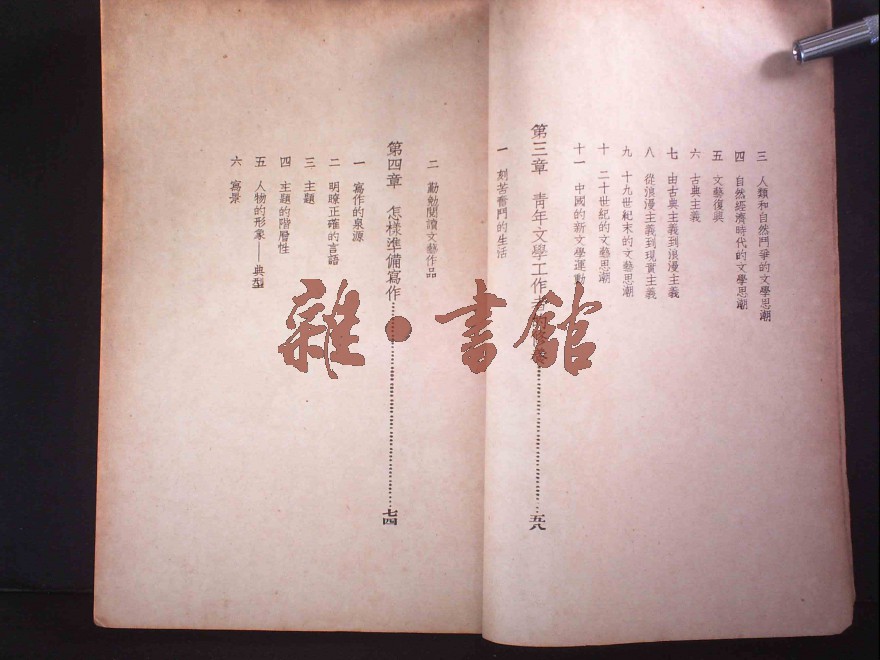 三　人類和自然鬥爭的文學思潮
四　自然經濟時代的文學思潮
五　文藝復興
六　古典主義
七　由古典主義到浪漫主義
八　從浪漫主義到現實主義
九　十九世紀末的文藝思潮
十　二十世紀的文藝思潮
十一　中國的新文學運動
第三章　青年文學工作者……五八
一　刻苦奮鬥的生活
二　勤勉閱讀文藝作品
第四章　怎樣準備寫作……七四
一　寫作的泉源
二　明瞭正確的言語
三　主題
四　主題的階層性
五　人物的形象——典型
六　寫景
雜·書館